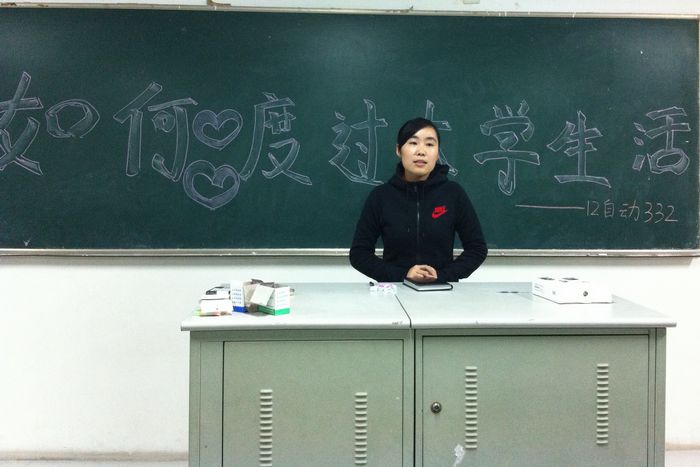 如何度过大学生活
——12自动332